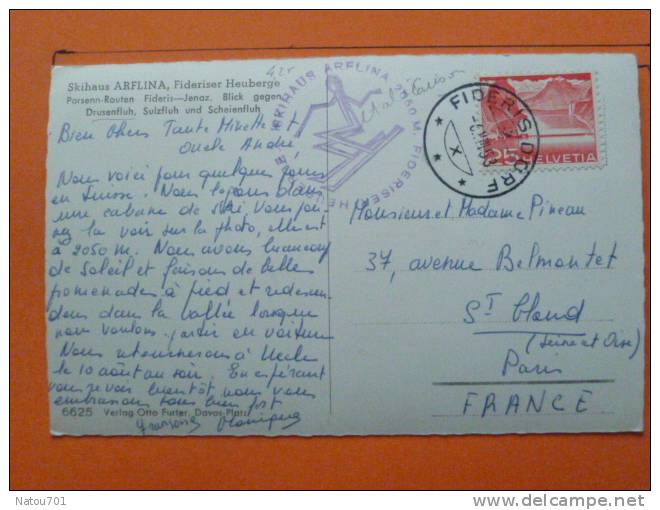 Skihaus ARFLINA, Fideriser Heuberge
Parsenn-Routen Fideris—Jenaz. Blick gegen
Drusenfluh, Sulzfluh und Scheienfluh
Bien chers Tante Minette et
Oncle André
Nous voici pour quelques jours
en Suisse. Nous logeons dans
une cabane de ski. Vous pou-
vez la voir sur la photo, elle est
à 2050 m. Nous avons beaucoup
de soleil et faisons de belles
promenades à pied et redescen-
dons dans la vallée lorsque
nous voulons partir en voiture
Nous retournerons à
le 10 août au soir. En espérant
vous revoir bientôt nous vous
embrassons tous bien fort
6625 Verlag Otto Furter, Davos-Platz
SKIHAUS ARFLINA 2050 M. FIDERISER HEUBERGE
FIDERIS DORF
X
25
HELVETIA
Monsieur et Madame Pineau
37, avenue Belmontet
St Cloud
(Seine et Oise)
Paris
FRANCE
Natou701